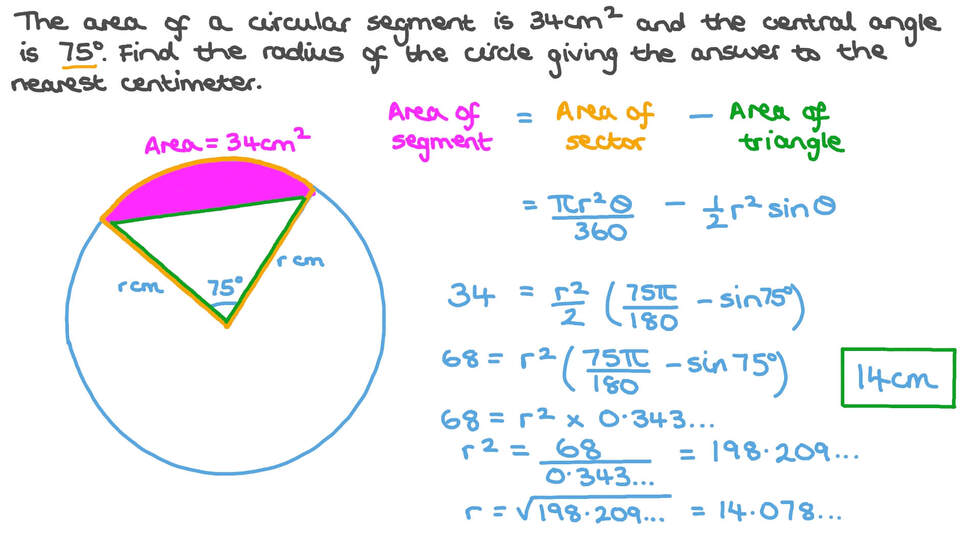 The area of a circular segment is 34cm² and the central angle
is 75°. Find the radius of the circle giving the answer to the
nearest centimeter.
Area of segment = Area of sector − Area of triangle
Area = 34cm²
= πr²θ/360 − 1/2 r² sin θ
r cm
r cm
75°
34 = r²/2 (75π/180 − sin75°)
68 = r² (75π/180 − sin 75°)
14cm
68 = r² × 0.343...
r² = 68/0.343... = 198.209...
r = √198.209... = 14.078...